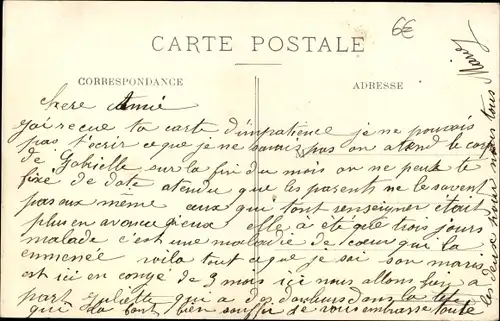 6€
CARTE POSTALE
CORRESPONDANCE
ADRESSE
chere Amie
j'ai recue ta carte d'impatience je ne pouvais
pas t'ecrir ce que je ne savais pas on atend le corp
de Gabrielle sur la fin du mois on ne peut te
fixé de date atendu que les parents ne le savent
pas aux meme ceux qui tout renseigner était
plus en avance qieux elle a été que trois jours
malade c'est une maladie de cœur qui la
enmenée voila tout ce que je sai son maris
est ici en congé de 3 mois ici nous allons bien a
part Juliette qui a des douleurs dans la tete
qui la font bien souffrir je vous embrasse toute
les deux pour nous tous
Marie